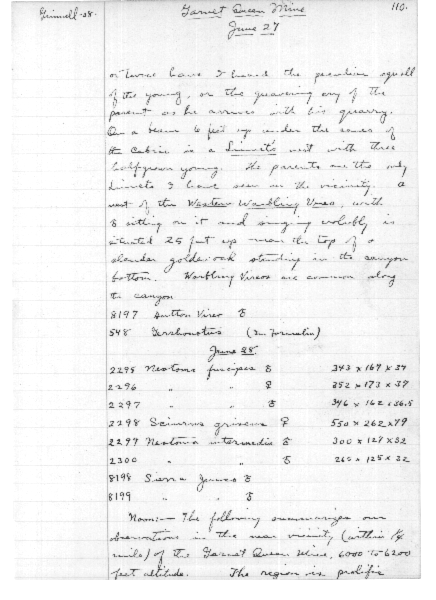 Grinnell - '08.
Garnet Queen Mine
110.
June 27
or twice have I heard the peculiar squall
of the young, or the quavering cry of the
parent as he arrives with his quarry.
On a beam 6 feet up under the eaves of
the cabin is a Linnet's nest with three
halfgrown young. The parents are the only
Linnets I have seen in the vicinity. A
nest of the Western Warbling Vireo, with
♂ sitting on it and singing volubly is
situated 25 feet up near the top of a
slender golden oak standing in the canyon
bottom. Warbling Vireos are common along
the canyon
8197 Hutton Vireo ♂
548 Gerrhonotus (In formalin)
June 28.
2295 Neotoma fuscipes ♂ 343 x 167 x 37
2296 " " ♀ 352 x 173 x 37
2297 " " ♂ 346 x 162 x 36.5
2298 Sciurus griseus ♀ 550 x 262 x 79
2299 Neotoma intermedia ♂ 300 x 127 x 32
2300 " " ♂ 265 x 125 x 32
8198 Sierra Junco ♂
8199 " " ♂
Noon:— The following summarizes our
observations in the near vicinity (within 1/4
mile) of the Garnet Queen Mine, 6000 to 6200
feet altitude. The region is prolific